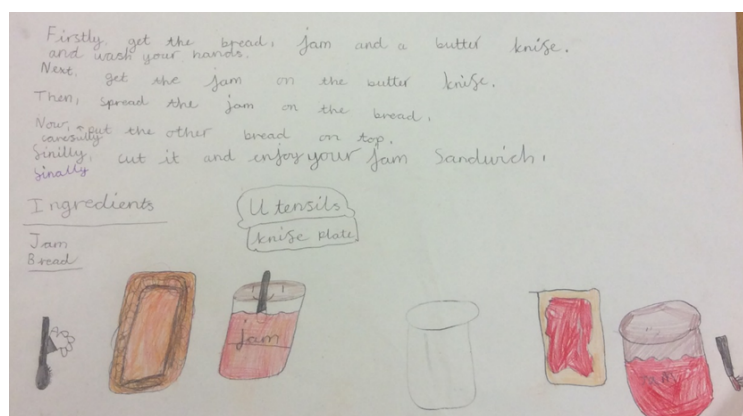 Firstly, get the bread, jam and a butter knife.
and wash your hands.
Next, get the jam on the butter knife.
Then, spread the jam on the bread.
Now, put the other bread on top.
carefully
Finilly, cut it and enjoy your jam Sandwich.
finally
Ingredients
Utensils
knife plate
Jam
Bread
jam
Jam